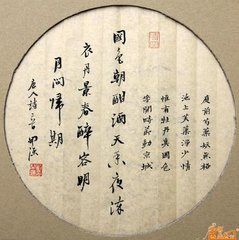 庭前芍药妖无格
池上芙蓉净少情
惟有牡丹真国色
開時节動京城
國色朝酣酒天香夜染
衣丹景春醉容明
月问歸期
唐人詩